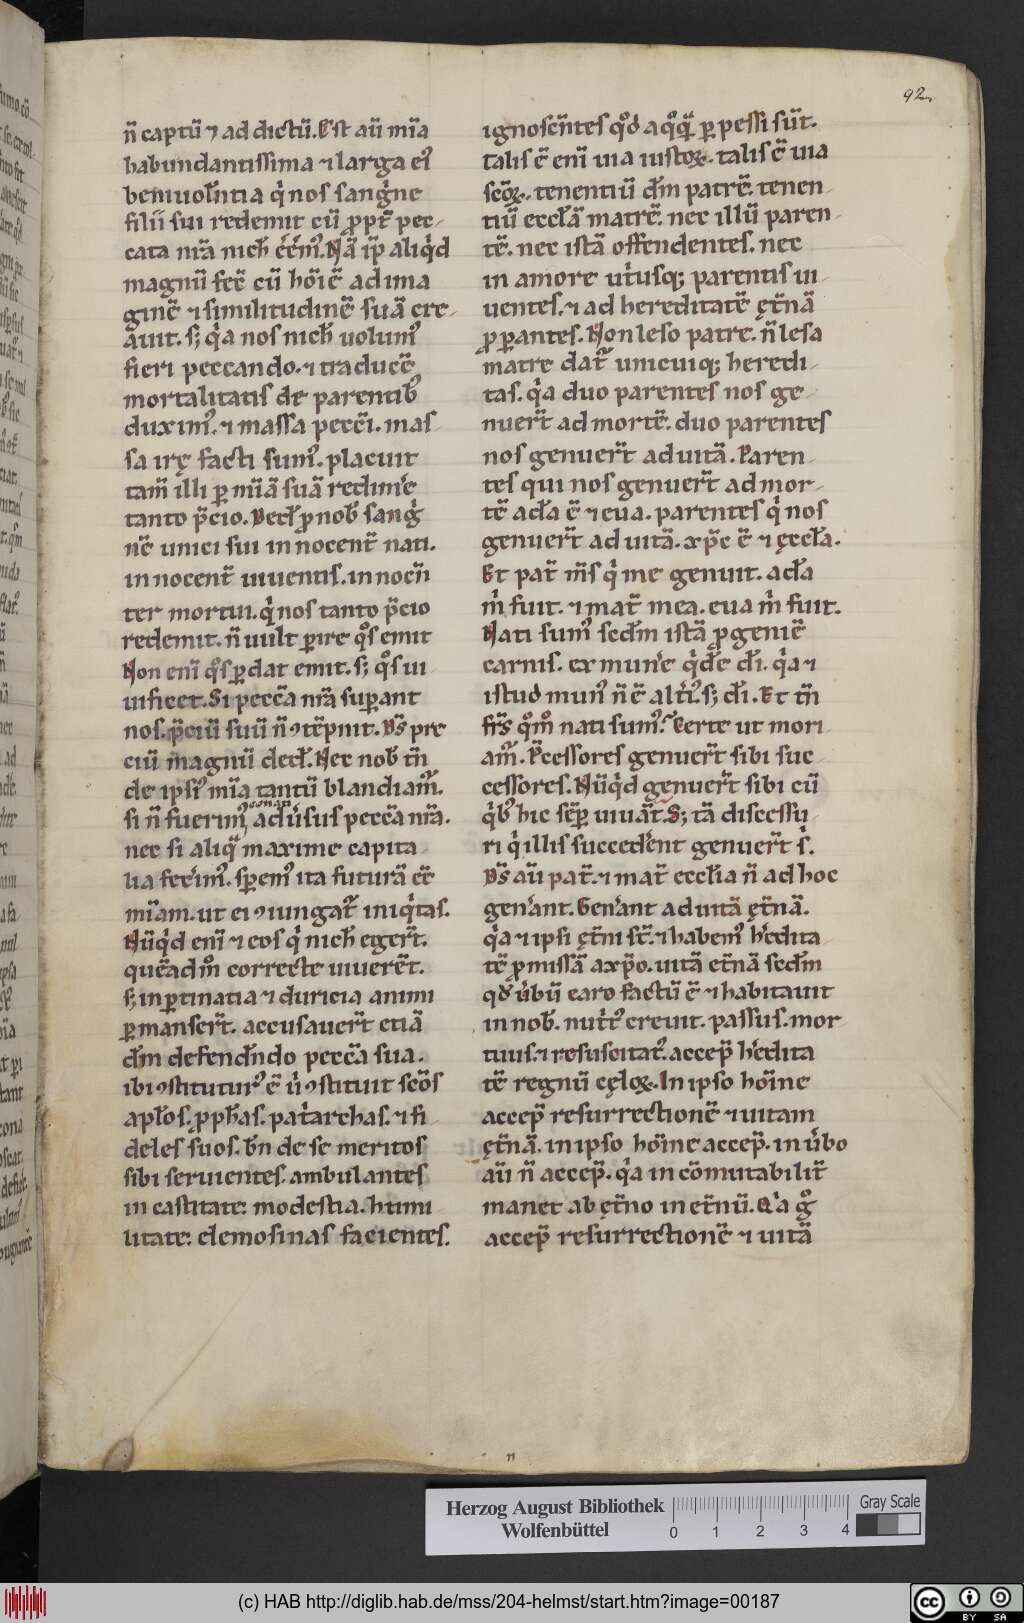 92
n̄ captū ⁊ ad dictū. Est aū mīa
habundantissima ⁊ larga eiꝰ
beniuoln̄tia q̇ nos sangṡne
filii sui redemit cū ꝓpt̄ pec-
cata nr̄a nich̄ eēmꝰ. Nā ip̄ aliq̇d
magnū fec̄ cū hōiē ad ima
ginē ⁊ similitudinē suā cre-
auit. s; q̇a nos nich̄ uolumꝰ
fieri peccando. ⁊ traducē
mortalitatis de parentibꝰ
duximꝰ. ⁊ massa pecc̄i. mas-
sa irę facti sumꝰ. placuit
tam̄ illi ꝑ mīā suā redimẽ
tanto p̄cio. Dedt̄ ꝓ nob̄ sangṡ
nē unici sui innocent̄ nati.
innocent̄ uiuentis. innocn̄
ter mortui. q̇ nos tanto p̄cio
redemit. n̄ uult ꝑire qͦs emit
Non enī qͦs ꝑdat emit. s; qͦs ui
uificet. Si pecc̄a nr̄a suꝑant
nos. p̄ciū suū n̄ ꝯtēpnit. Ds̄ pre
ciū magnū dedt̄. Nec nob̄ tn̄
de ipsiꝰ mīa tantū blandiam̄.
si n̄ fuerimꝰ conati adu̇sus pecc̄a nr̄a.
nec si aliq̄ maxime capita-
lia fecimꝰ. sꝑemꝰ ita futurā eē
mīam. ut ei ꝯiungat̄ iniq̇tas.
Nūq̇d enī ⁊ eos q̇ nich̄ eger̄t.
quēadmͦ correcte uiuerēt.
s; in ꝑtinatia ⁊ duricia animi
ꝑmanser̄t. accusauer̄t etiā
dm̄ defendn̄do pecc̄a sua.
ibi ꝯstituturꝰ ē u̇ ꝯstituit sc̄os
apl̄os. ꝓph̄as. pat̓archas. ⁊ fi
deles suos. bn̄ de se meritos
sibi seruientes. ambulantes
in castitate: modestia. humi-
litate: elemosinas facientes.
ignoscn̄tes qͦd a qͦq̄ ꝑpessi sūt.
talis ē enī uia iustoꝝ. talis ē uia
sc̄oꝝ. tenentiū dm̄ patrē. tenen-
tiū eccl̄ā matrē. nec illū paren-
tē. nec istā offendentes. nec
in amore ut̓usq; parentis ui-
uentes. ⁊ ad hereditatē ęt̄nā
ꝓꝑantes. Non leso patre. n̄ lesa
matre dat̄ unicuiq; heredi-
tas. q̇a duo parentes nos ge-
nuer̄t ad mortē. duo parentes
nos genuer̄t ad uitā. Paren-
tes qui nos genuer̄t ad mor-
tē adā ē ⁊ eua. parentes q̇ nos
genuer̄t ad uitā. xp̄c ē ⁊ ęccl̄a.
Et pat̄ m̄s q̇ me genuit. adā
m̓ fuit. ⁊ mat̄ mea. eua m̓ fuit.
Nati sumꝰ secdm̄ istā ꝓgeniē
carnis. ex munẽ q̇dē di̅. q̇a ⁊
istud munꝰ n̄ ē alt̓iꝰ. s; di̅. Et tn̄
fr̄s qͦmͦ nati sumꝰ? Certe ut mori
am̄. P̄cessores genuer̄t sibi suc-
cessores. Nūq̇d genuer̄t sibi cū
q̇bꝰ hic sēꝑ uiuāt. S; tā discessu-
ri q̇ illis succedn̄t genuer̄t s̓.
Ds̄ aū pat̄. ⁊ mat̄ eccl̄ia n̄ ad hoc
genˀant. Genˀant ad uitā ęt̄nā.
q̇a ⁊ ipsi ęt̄ni st̄. ⁊ habemꝰ hˀedita-
tē ꝓmissā a xp̄o. uitā et̄nā secdm̄
qd̄ u̓bū caro factū ē ⁊ habitauit
in nob̄. nut̓tꝰ creuit. passus. mor-
tuus. ⁊ resuscitatꝰ. accep̄ hˀedita
tē regnū cęloꝝ. In ipso hōine
accep̄ resurrectionē ⁊ uitam
ęt̄nā. in ipso hōine accep̄. in u̓bo
aū n̄ accep̄. q̇a incōmutabilit̄
manet ab ęt̄no in et̄nū. Q̇a gͦ
accep̄ resurrectionē ⁊ uitā
Herzog August Bibliothek
Wolfenbüttel
0 1 2 3 4
Gray Scale
(c) HAB http://diglib.hab.de/mss/204-helmst/start.htm?image=00187
cc BY SA